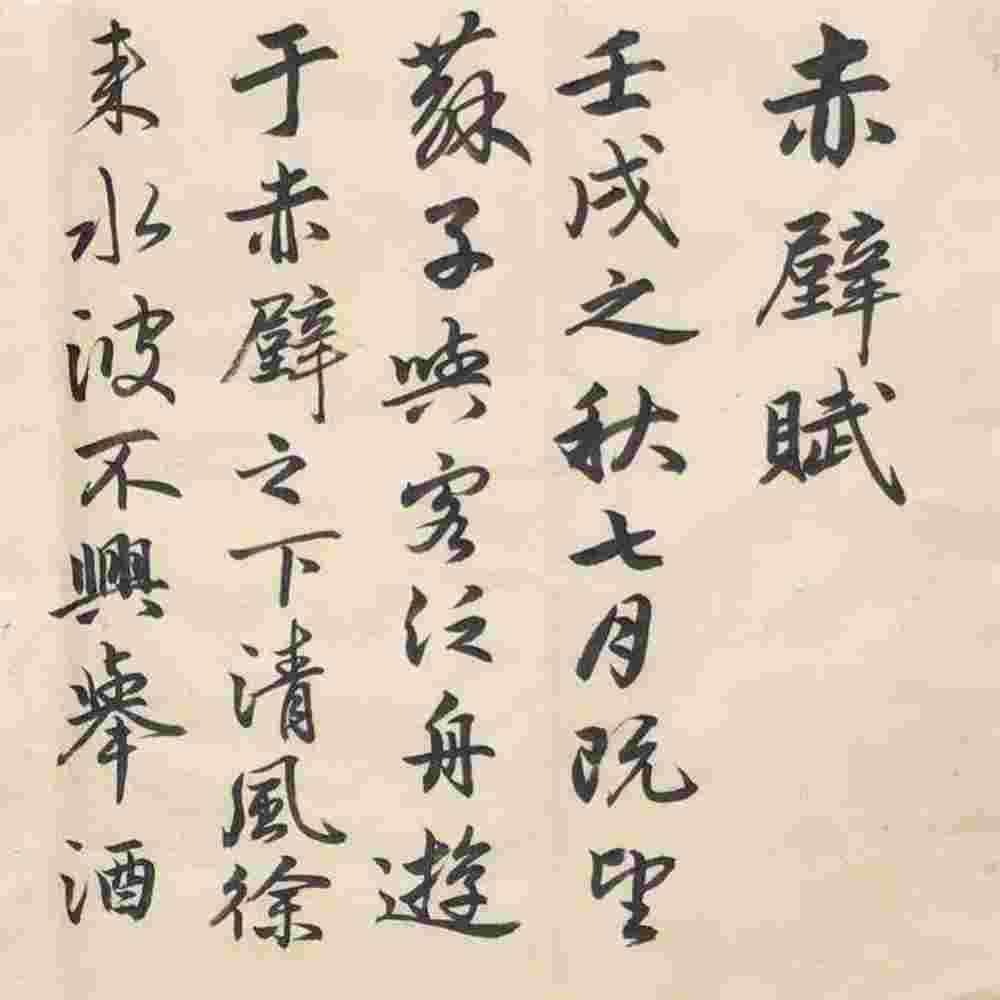 赤壁賦
壬戌之秋七月既望
蘇子與客泛舟遊
于赤壁之下清風徐
来水波不興舉酒